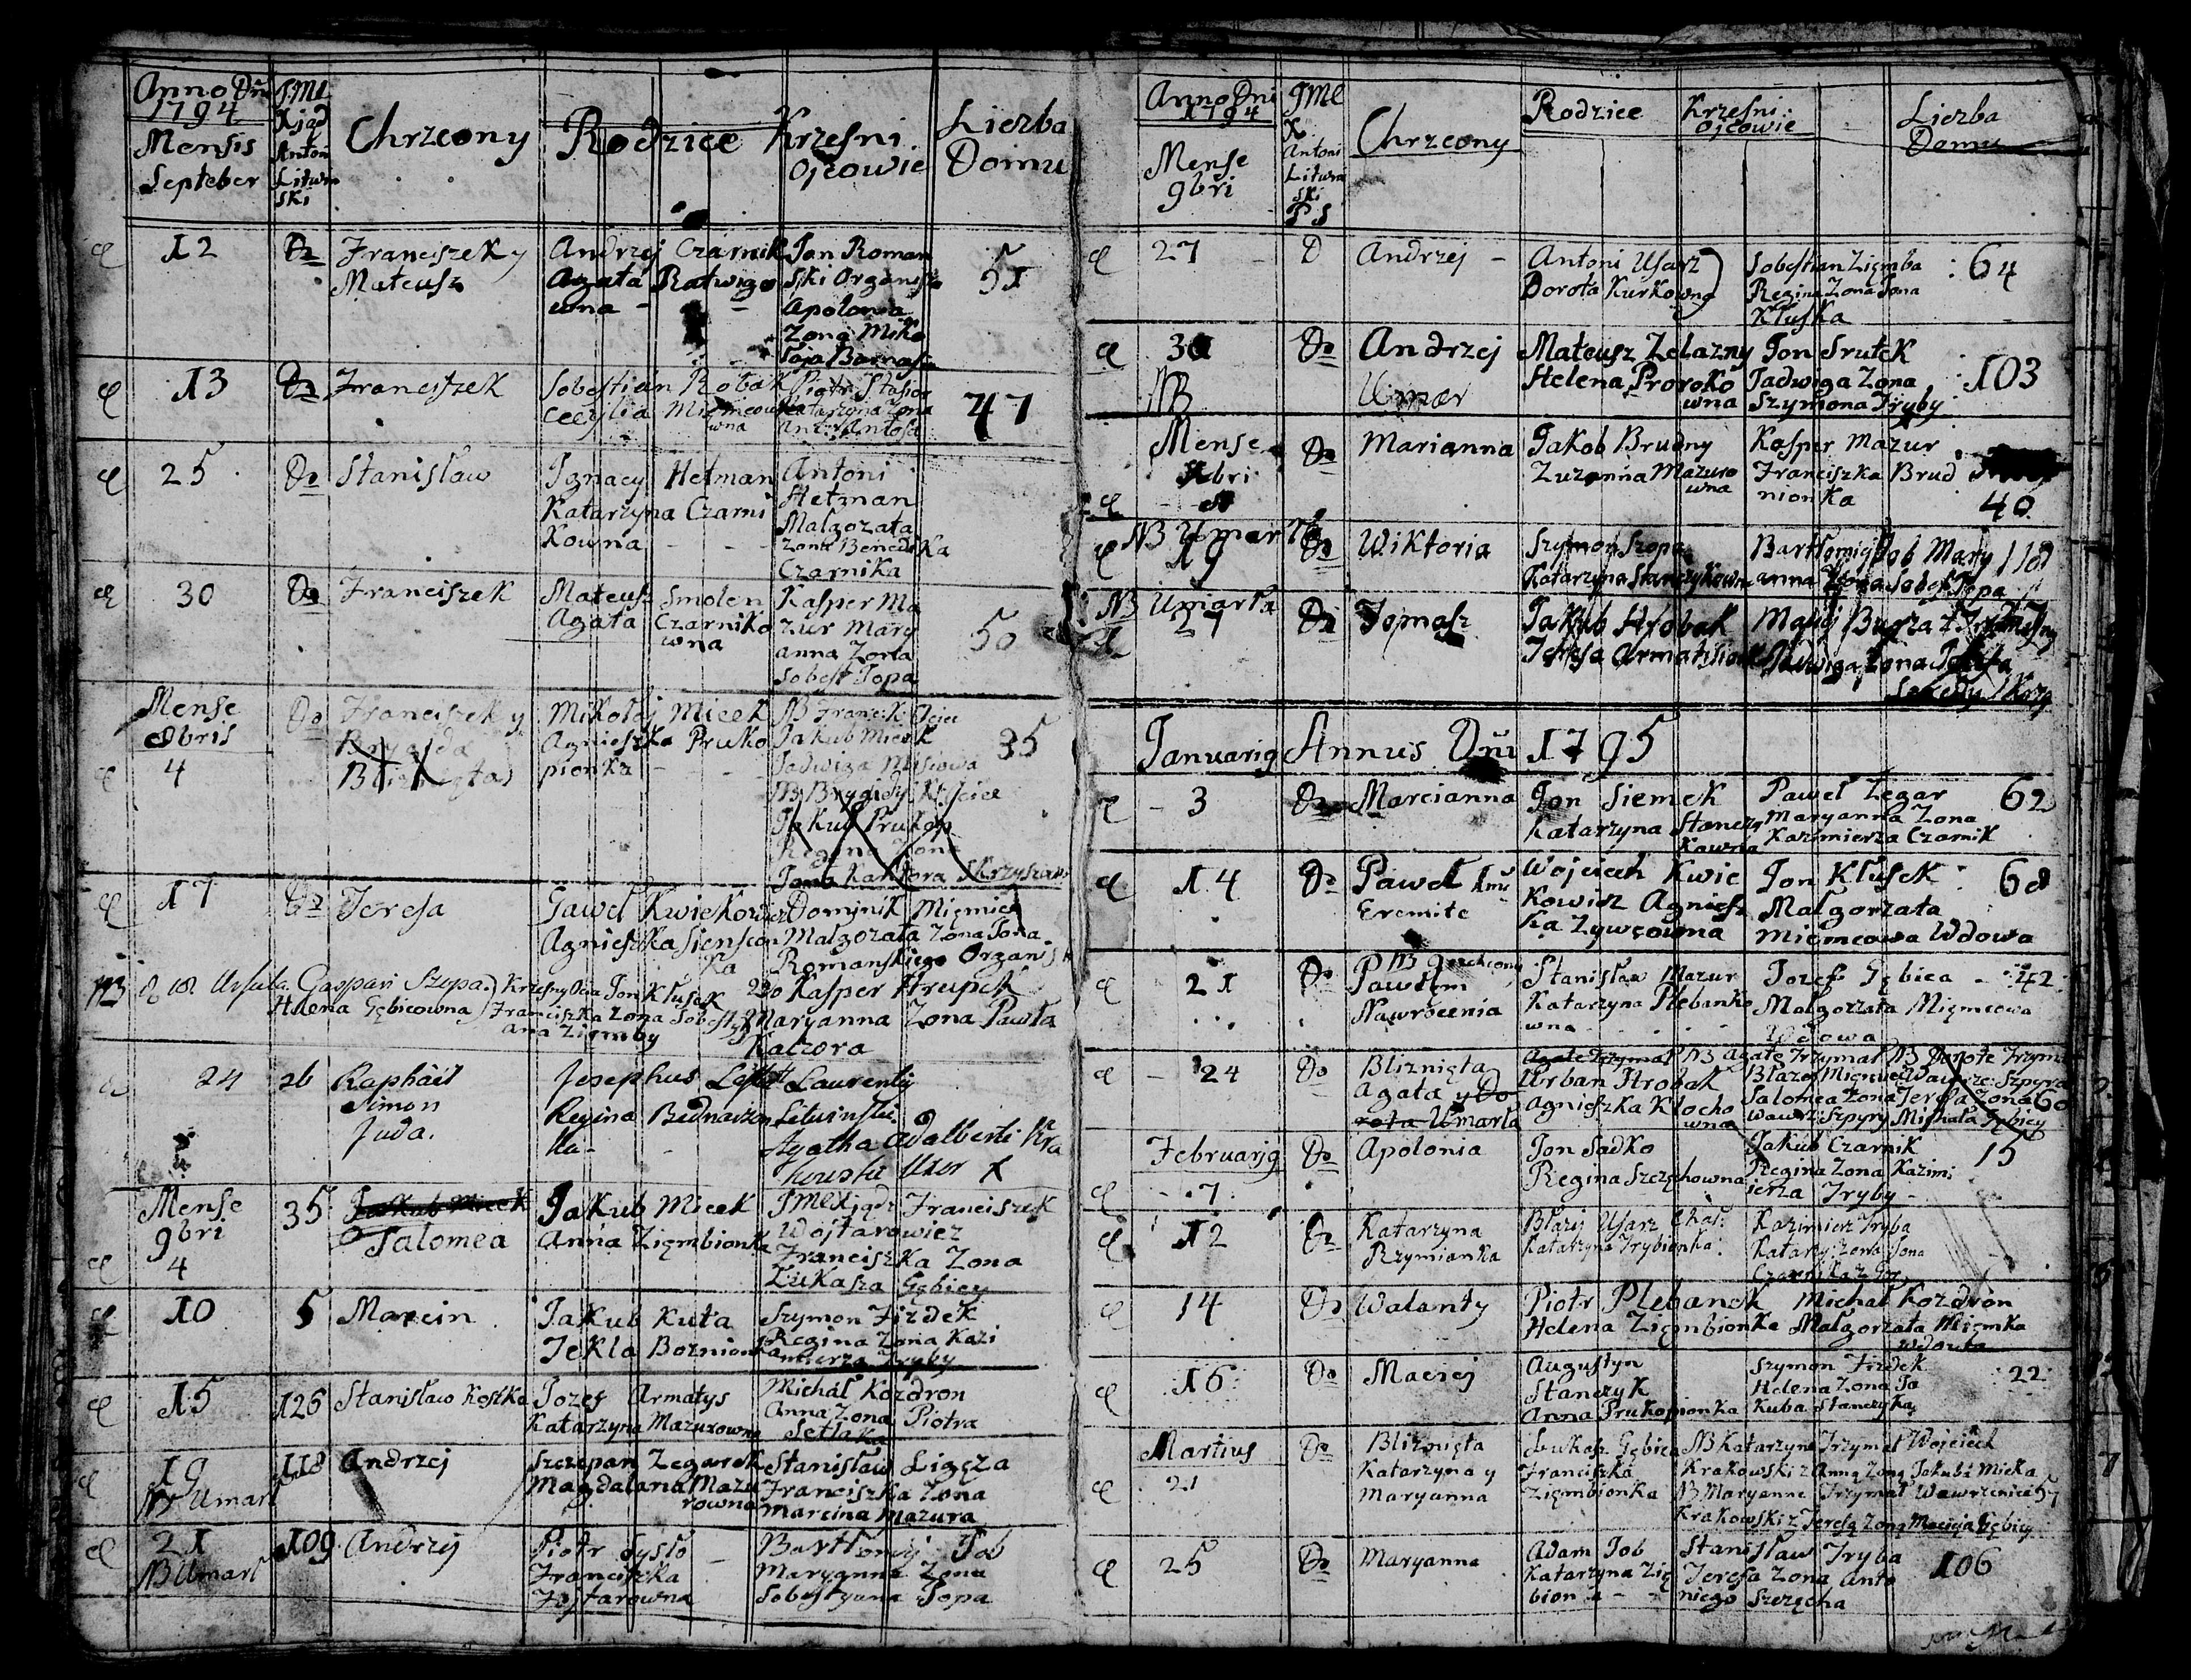 Anno Dni
1794
Mensis
Septeber
JMX
Xjadz
Antoni
Litwin
ski
Chrzcony
Rodzice
Krzesni
Ojcowie
Liczba
Domu
12 Do Franciszek y
Mateusz
Andrzej Czarnik
Agata Ratwigo
wna
Jan Roman
ski Organista
Apolonia
Zona Miko
łaja
51
13 Do Franciszek
Sobestian Robak
Cecylia
wna
Piotr
Katarzyna Zona
47
25 Do Stanisław
Ignacy Hetman
Katarzyna Czarni
kowna
Antoni
Hetman
Małgozata
Zona Benedika
Czarnika
30 Do Franciszek
Mateusz Smolen
Agata Czarniko
wna
Kasper Ma
zur Mary
anna Zona
Sobest Topa
50
Mense
8bris
4
Do Franciszek y
Brygida
Bliznięta
Mikołaj Micek
Agnieszka Pruko
pionka
NB Francisz: Ojciec
Jakub Micek
Jadwiga
NB Brygidy
Jakub Prukop
Regina Zona
Kantora
35
17 Do Teresa
Paweł Kwiekowicz
Agnieszka Sienscon
ka
Dominik Mięmiec
Małgozata Zona Jana
Romanskiego Organis
NB 22 Ursula Gaspari Szopa
Helena Gębicowna
Krzesny Ociec Jon Kłusek
Franciszka Zona Sobesty
ana Ziemby
2do Kasper Hrupek
Maryanna Zona Pawła
Kaczora
24 26 Raphäel
Simon
Juda.
Josephus
Regina Bednarzon
ka
Laurenty
Litwinski
Agatha Adalberti Kra
kowski Uxor
Mense
9bri
4
35 Jakub Micek
Salomea
Jakub Micek
Anna Ziembionka
JMX Xjądz Franciszek
Wojtarowicz
Franciszka Zona
Łukasza Gębicy
10 5 Marcin
Jakub Kuta
Tekla Boznionka
Szymon Firdek
Regina Zona Kazi
mierza Tryby
15 126 Stanisław Kostka
Jozef Armatys
Katarzyna Mazurowna
Michał Kozdron
Anna Zona Piotra
Setlaka
19 118 Andrzej
NB Umarł
Szczepan Zegarek
Magdalana Mazu
rowna
Stanisław Ligęza
Franciszka Zona
Marcina Mazura
21 109 Andrzej
NB Umarł
Piotr
Franciszka
Bartłomiej Job
Maryanna Zona
Sobestyana Topa
Anno Dni
1794
Mense
9bri
JMC
X
Antoni
Litwin
ski
PS
Chrzcony
Rodzice
Krzesni
Ojcowie
Liczba
Domu
27 D Andrzej
Antoni Usarz
Dorota Kurkowna
Sobestian Ziemba
Regina Zona Jana
Kłuska
64
30 Do Andrzej
NB Umar
Mateusz Zelazny
Helena Proroko
wna
Jon Srutek
Jadwiga Zona
Szymona Tryby
103
Mense
Xbri
Do Marianna
Jakob Brudny
Zuzanna Mazuro
wna
Kasper Mazur
Franciszka Brud
nionka
40
NB Umarła
19 Do Wiktoria
Szymon Szopa
Katarzyna Stanczykowna
Bartłomiej Job Mary
anna Zona Sobest Topa
NB Umarła
21 Do Tomasz
Jakub Hrobak
Teresa
Maciej
Jadwiga Zona Jozefa
Januarig Annus Dni 1795
3 Do Marcianna
Jon Siemek
Katarzyna Stanczy
kowna
Paweł Zegar
Maryanna Zona
Kazimierza Czarnik
62
14 Do Paweł
Eremite
Wojciech Kwie
kowicz Agniesz
ka Zywcowna
Jon Kłusek
Malgorzata
Miemcowa Wdowa
21 Do
Pawłem
Nawrócenia
Stanisław Mazur
Katarzyna Plebanko
wna
Jozef Gębica
Małgorzata Miemcowa
Wdowa
42
24 Do Bliznięta
Agata y Do
rota Umarła
Urban Hrobak
Agnieszka Kłocho
wna
NB Agate Trzymał
Salomea Zona
Wawrz: Szpyry
NB Dorote Trzym
Wawrz: Szpyra
Teresa Zona
Michała Gębicy
60
Februarjg
7
Do Apolonia
Jon Sadko
Regina Szczęchowna
Jakub Czarnik
Regina Zona Kazim:
ierza Tryby
15
12 Do Katarzyna
Rzymianka
Błazej Usarz
Katarzyna Trybionka
Kazimierz Tryba
Katarzy: Zona Jona
Czarnika
14 Do Walanty
Piotr Plebanek
Helena Ziembionka
Michał Kozdron
Malgorzata Miemka
Wdowa
16 Do Maciej
Augustyn
Stanczyk
Anna Prukopionka
Szymon Firdek
Helena Zona Ja
kuba Stanczyka
22
Martius
21
Do Bliznięta
Katarzyna y
Maryanna
Łukasz Gębica
Franciszka
Ziembionka
NB Katarzyne Trzymał Wojciech
Krakowski z Anną Zoną Jakuba Micka
NB Maryanne Trzymał Wawrzeniec
Krakowski z Teresą Zoną Macieja Gębicy
57
25 Do Maryanna
Adam Job
Katarzyna Zię
bionka
Stanisław Tryba
Teresa Zona Anto
niego Szczęcha
106